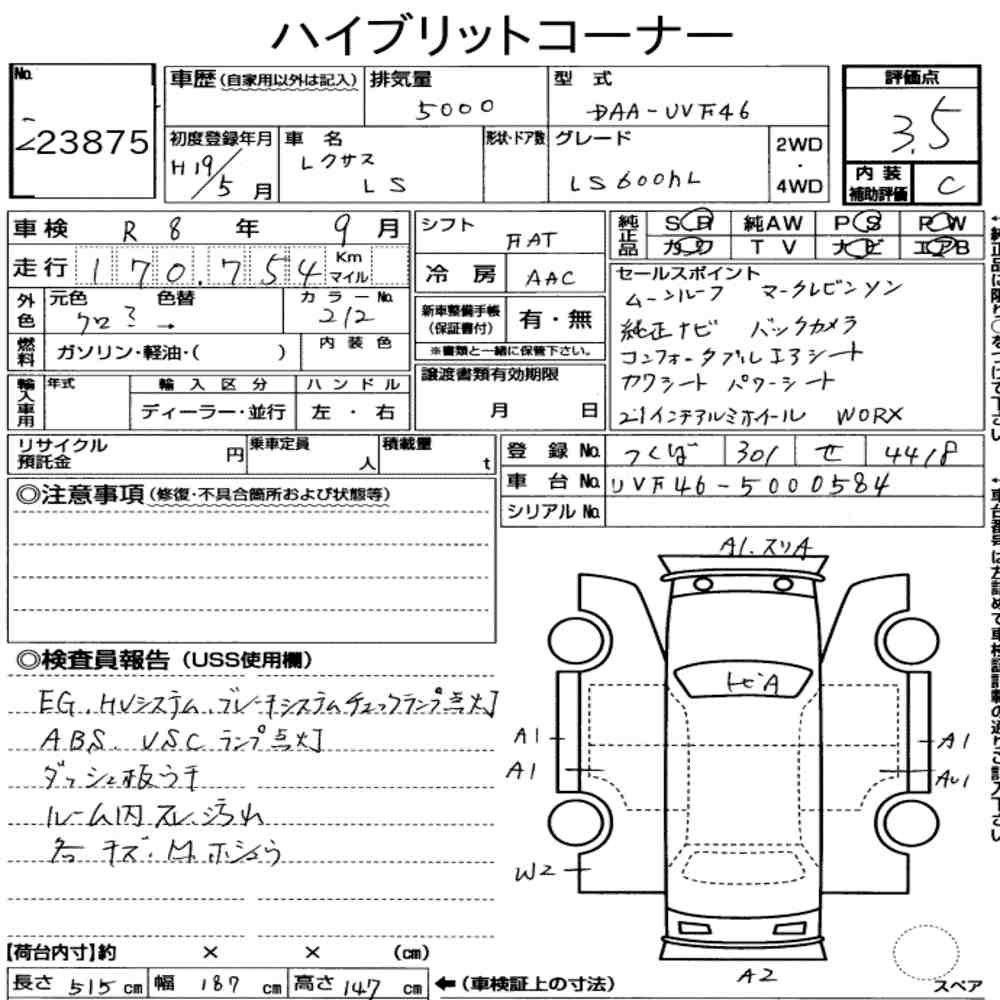 ハイブリットコーナー
No. 23875
車歴(自家用以外は記入) 排気量 5000 型式 DAA-UVF46 評価点 3.5
初度登録年月 H19/5月 車名 レクサス LS 形状・ドア数 グレード LS600hL 2WD・4WD 内装補助評価 C
車検 R 8 年 9 月 シフト FAT 純正品 SR 純AW PS PW
カワ TV ナビ エアB
走行 170,754 Km マイル 冷房 AAC
外色 元色 クロ 色替 カラーNo. 212
新車整備手帳(保証書付) 有・無
※書類と一緒に保管下さい。
燃料 ガソリン・軽油・( ) 内装色
輸入車用 年式 輸入区分 ハンドル
ディーラー・並行 左・右
譲渡書類有効期限
月 日
セールスポイント
ムーンルーフ マークレビンソン
純正ナビ バックカメラ
コンフォータブルエアシート
カワシート パワーシート
21インチアルミホイール WORX
リサイクル預託金 円 乗車定員 人 積載量 t
登録No. つくば 301 せ 4418
車台No. UVF46-5000584
シリアルNo.
←純正品に限り○をつけて下さい
◎注意事項(修復・不具合箇所および状態等)
◎検査員報告(USS使用欄)
EG.HVシステム.ブレーキシステムチェックランプ点灯
ABS.VSCランプ点灯
ダッシュ板ウキ
ルーム内スレ.汚れ
各キズ.M.ホショウ
A1.スリA
トビA
A1
A1
W2
A1
AU1
A2
スペア
【荷台内寸】約 × × (cm)
長さ 515 cm 幅 187 cm 高さ 147 cm ←(車検証上の寸法)